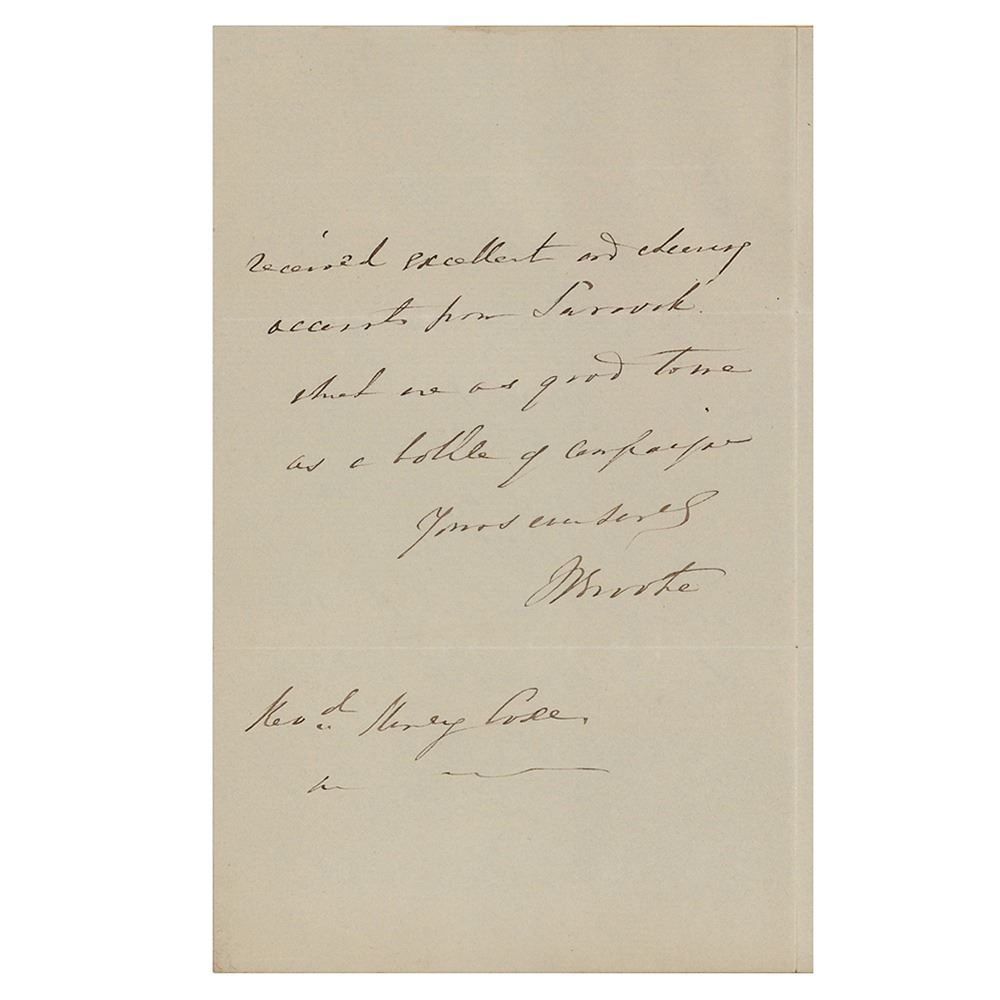 received excellent and cheering
accounts from Sarawak.
which are as good to me
as a bottle of campaigne
Yours ever sincerely
JBrooke
Revd. Henry Coxe.